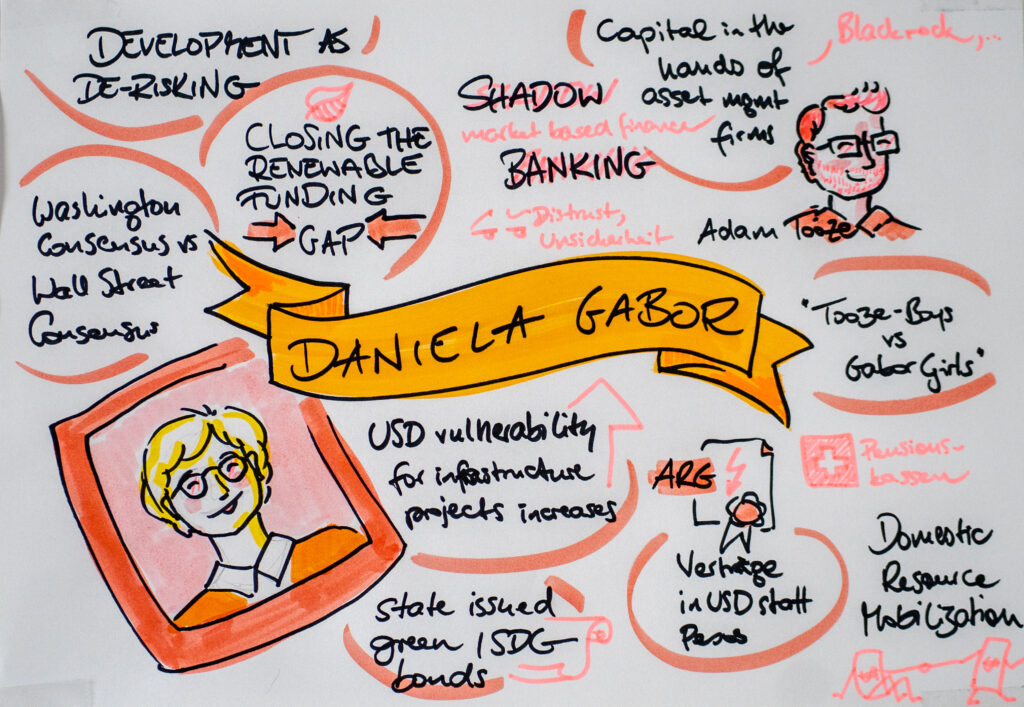 DEVELOPMENT AS
DE-RISKING
CLOSING THE
RENEWABLE
FUNDING
GAP
Washington
Consensus vs
Wall Street
Consensus
SHADOW
market based finance
BANKING
Distrust,
Unsicherheit
Capital in the
hands of
asset mgmt
firms
Blackrock,...
Adam Tooze
DANIELA GABOR
"Tooze-Boys
vs
Gabor Girls"
USD vulnerability
for infrastructure
projects increases
ARG
Verträge
in USD statt
Pesos
Pensions-
kassen
state issued
green / SDG-
bonds
Domestic
Resource
Mobilization